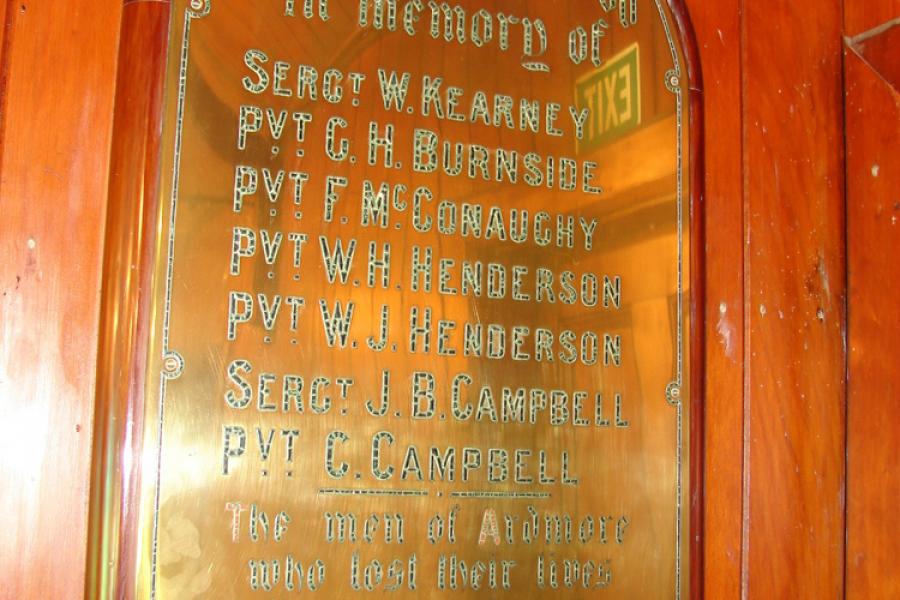 In memory of
SERGT W. KEARNEY
PVT G. H. BURNSIDE
PVT F. McCONAUGHY
PVT W. H. HENDERSON
PVT W. J. HENDERSON
SERGT J. B. CAMPBELL
PVT C. CAMPBELL
The men of Ardmore
who lost their lives
EXIT